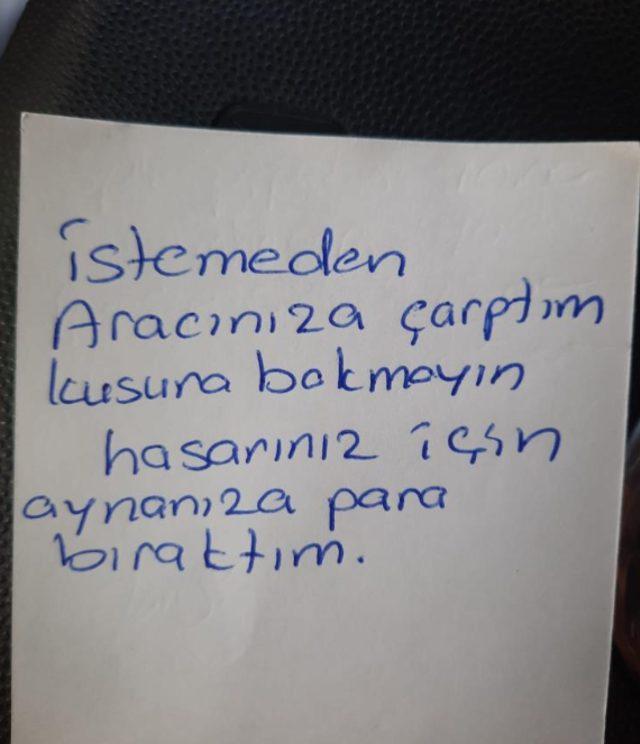 istemeden
Aracınıza çarptım
kusura bakmayın
hasarınız için
aynanıza para
bıraktım.